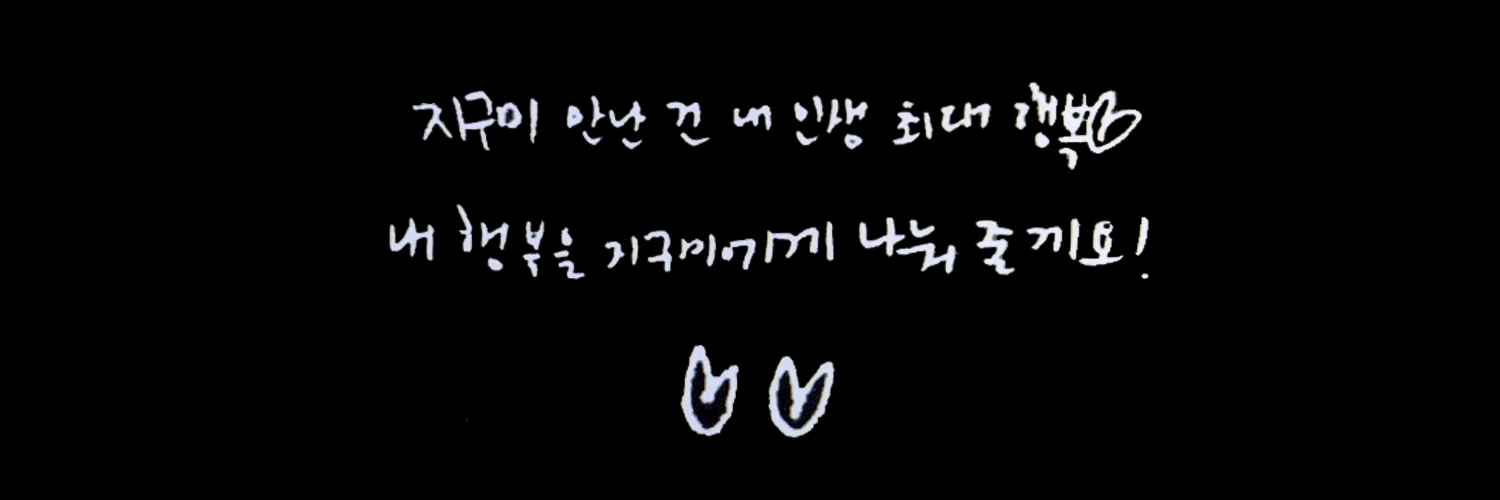 지구미 만난 건 내 인생 최대 행복
내 행부을 지구미에게 나눠 줄게요!